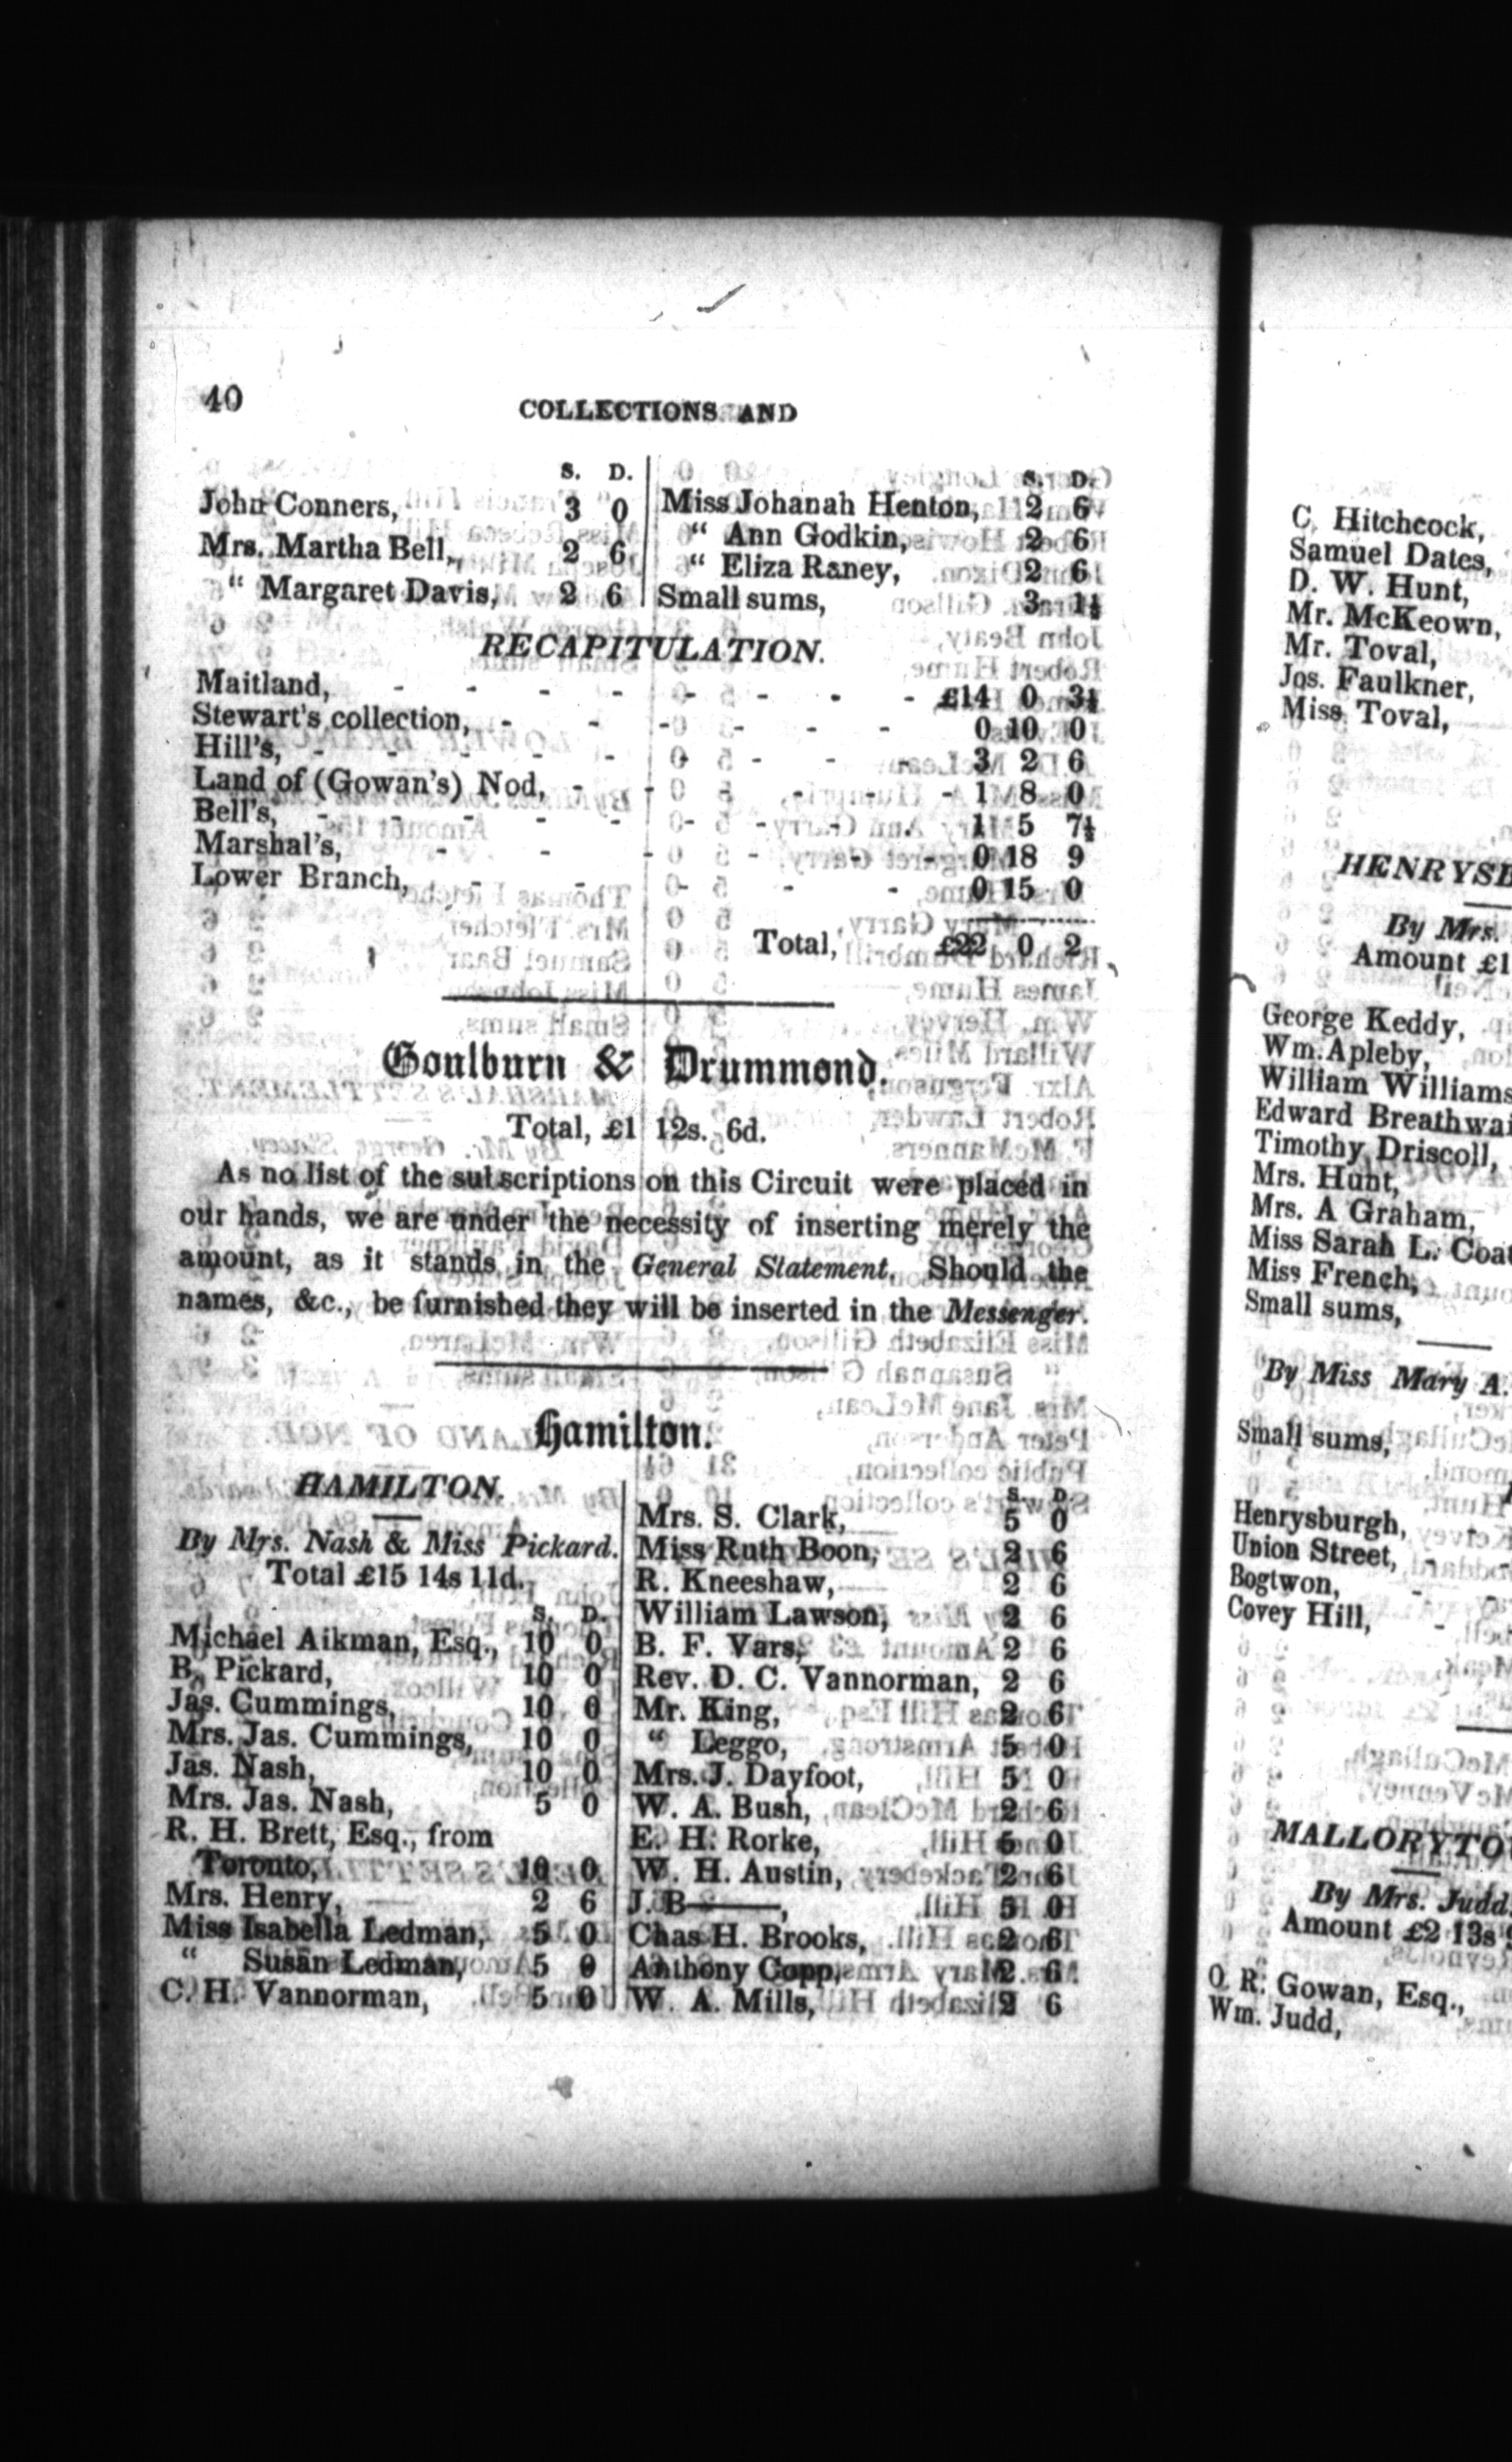 40
COLLECTIONS AND
S. D.
John Conners, 3 0
Mrs. Martha Bell, 2 6
“ Margaret Davis, 2 6
S. D.
Miss Johanah Henton, 2 6
“ Ann Godkin, 2 6
“ Eliza Raney, 2 6
Small sums, 3 1½
RECAPITULATION.
Maitland, - - - - - - - - £14 0 3½
Stewart's collection, - - - - - - 0 10 0
Hill's, - - - - - - - - 3 2 6
Land of (Gowan's) Nod, - - - - - 1 8 0
Bell's, - - - - - - - - 1 5 7½
Marshal's, - - - - - - 0 18 9
Lower Branch, - - - - - 0 15 0
Total, £22 0 2
Goulburn & Drummond.
Total, £1 12s. 6d.
As no list of the subscriptions on this Circuit were placed in
our hands, we are under the necessity of inserting merely the
amount, as it stands in the General Statement. Should the
names, &c., be furnished they will be inserted in the Messenger.
Hamilton.
HAMILTON.
By Mrs. Nash & Miss Pickard.
Total £15 14s 11d.
S. D.
Michael Aikman, Esq., 10 0
B. Pickard, 10 0
Jas. Cummings, 10 0
Mrs. Jas. Cummings, 10 0
Jas. Nash, 10 0
Mrs. Jas. Nash, 5 0
R. H. Brett, Esq., from
Toronto, 10 0
Mrs. Henry, 2 6
Miss Isabella Ledman, 5 0
“ Susan Ledman, 5 0
C. H. Vannorman, 5 0
S. D.
Mrs. S. Clark, 5 0
Miss Ruth Boon, 2 6
R. Kneeshaw, 2 6
William Lawson, 2 6
B. F. Vars, 2 6
Rev. D. C. Vannorman, 2 6
Mr. King, 2 6
“ Leggo, 5 0
Mrs. J. Dayfoot, 5 0
W. A. Bush, 2 6
E. H. Rorke, 5 0
W. H. Austin, 2 6
J. B——, 5 0
Chas H. Brooks, 2 6
Anthony Copp, 2 6
W. A. Mills, 2 6
C. Hitchcock,
Samuel Dates,
D. W. Hunt,
Mr. McKeown,
Mr. Toval,
Jos. Faulkner,
Miss Toval,
HENRYSB
By Mrs.
Amount £1
George Keddy,
Wm. Apleby,
William Williams
Edward Breathwai
Timothy Driscoll,
Mrs. Hunt,
Mrs. A Graham,
Miss Sarah L. Coat
Miss French,
Small sums,
By Miss Mary A.
Small sums,
Henrysburgh,
Union Street, - -
Bogtwon, - -
Covey Hill, -
MALLORYTO
By Mrs. Judd
Amount £2 13s
O. R. Gowan, Esq.,
Wm. Judd,